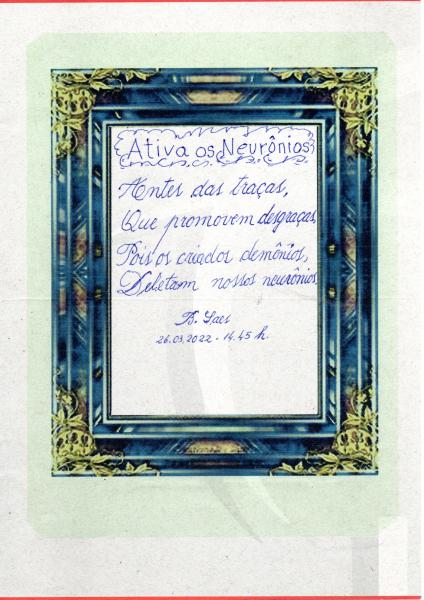 Ativa os Neurônios
Antes das traças,
Que promovem desgraças,
Pois os criados demônios,
Deletam nossos neurônios.
B. Saes
26.03.2022 - 14.45 h.